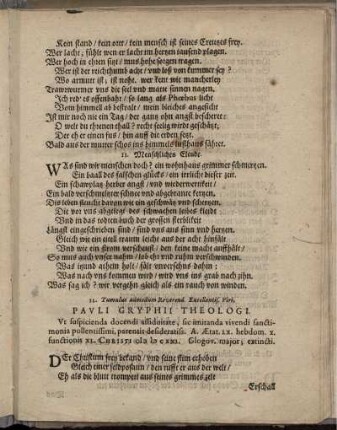 Kein stand / kein ort / kein mensch ist seines Creutzes frey.
Wer lacht; fühlt wen er lacht im hertzen tausend plagen.
Wer hoch in ehren sitzt / mus hohe sorgen tragen.
Wer ist der reichthumb acht / und loß von kummer sey?
Wo armut ist; ist noht. wer kent wie mancherley
Trawrwurmer uns die seel und matte sinnen nagen.
Ich red' es offenbahr / so lang als Phœbus licht
Vom himmel ab bestralt / mein bleiches angesicht
Ist mir noch nie ein Tag / der gantz ohn angst bescheret:
O welt du threnen thall! recht seelig wirdt geschätzt,
Der eh er einen fus / hin auff die erden setzt.
Bald aus der mutter schos ins himmels lusthaus fähret.
11. Menschliches Elende
WAs sind wir menschen doch? ein wohnhaus grimmer schmertzen.
Ein baall des falschen glücks / ein irrlicht dieser zeit.
Ein schawplatz herber angst / und wiederwertikeit /
Ein bald verschmeltzter schnee und abgebrante kertzen.
Dis leben fleucht davon wie ein geschwätz und schertzen.
Die vor uns abgelegt des schwachen leibes kleidt
Und in das todten buch der grossen sterblikeit
Längst eingeschrieben sind / sind uns aus sinn und hertzen.
Gleich wie ein eitel traum leicht aus der acht hinfält
Und wie ein strom verscheust / den keine macht auffhält /
So mus auch unser nahm / lob ehr und ruhm verschwinden.
Was itzund athem holt / fält unversehns dahin;
Was nach uns kommen wird / wird uns ins grab nach zihn.
Was sag ich? wir vergehn gleich als ein rauch von winden.
12. Tumulus admodum Reverend. Excellentis. Viri.
PAVLI GRYPHII THEOLOGI.
Vt suspicienda docendi assiduitate, sic imitanda vivendi sanctimonia pollentissimi, parentis desideratiss. A. Ætat. LX. hebdom. 2.
functionis XI. CHRISTI CIↃ IↃ CXXI. Glogov. major, extincti.
DEr Christum frey bekand / und seine stim erhoben
Gleich einer feldposaun / den rufft er aus der welt /
Eh als die blutt trompet aus seines grimmes zelt
Erschall